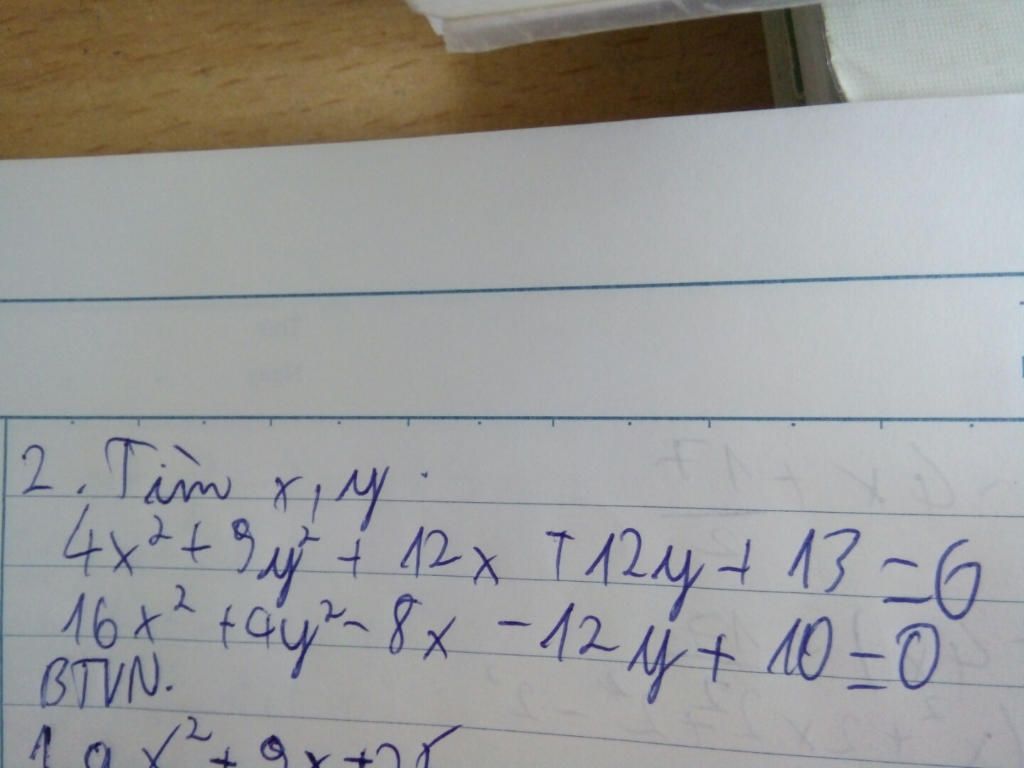 2. Tìm x, y.
4x² + 9y² + 12x + 12y + 13 = 0
16x² + 4y² - 8x - 12y + 10 = 0
BTVN.